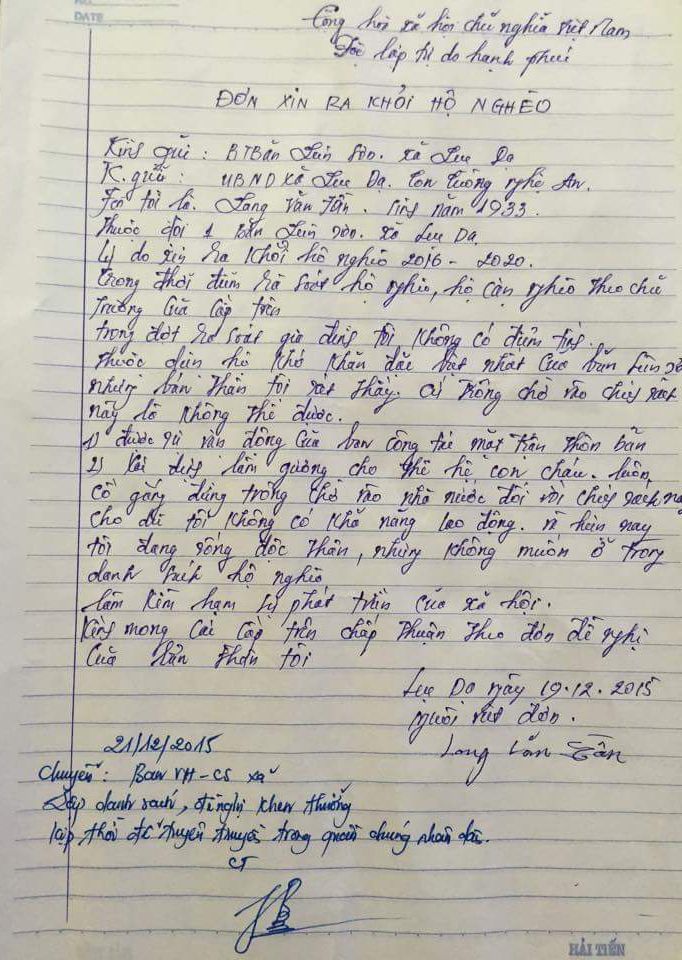 DATE
Cộng hòa xã hội chủ nghĩa Việt Nam
Độc lập tự do hạnh phúc
ĐƠN XIN RA KHỎI HỘ NGHÈO
Kính gửi: BTBản Lục Sơn. xã Lục Dạ
K. gửi: UBND xã Lục Dạ. Con Cuông nghệ An.
Tên tôi là. Lang Văn Tần. Sinh năm 1933.
Thuộc đội 1 Bản Sơn. xã Lục Dạ
Lý do xin Ra Khỏi hộ nghèo 2016 - 2020.
Trong thời điểm Rà Soát hộ nghèo, hộ cận nghèo theo chủ
trương của cấp trên
trong đợt Rà Soát gia đình tôi không có điểm tính.
Thuộc diện hộ khó khăn đặc biệt nhất của bản
nhưng bản thân tôi xét thấy. cứ trông chờ vào chính sách
này là không thể được.
1) được sự vận động của ban công tác mặt trận thôn bản
2) lấy làm gương cho thế hệ con cháu. luôn
cố gắng đừng trông chờ vào nhà nước đối với chính sách
cho dù tôi không có khả năng lao động. và hiện nay
tôi đang sống độc thân, nhưng không muốn ở trong
danh sách hộ nghèo
làm kìm hãm sự phát triển của xã hội.
Kính mong các cấp trên chấp thuận theo đơn đề nghị
của bản thân tôi
Lục Dạ ngày 19.12.2015
người viết đơn.
Lang Văn Tần
21/12/2015
Chuyển: Ban VH-CS xã
Lập danh sách, đề nghị khen thưởng
kịp thời để tuyên truyền trong quần chúng nhân dân.
CT
HẢI TIẾN